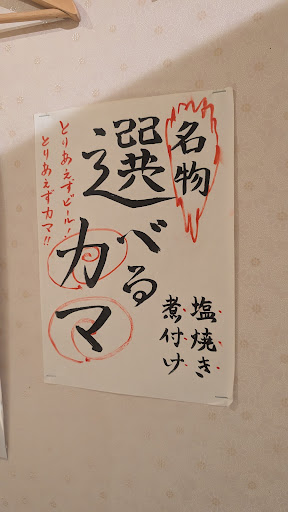 名物
選べる
カマ
塩焼き
煮付け
とりあえずビール!
とりあえずカマ!!